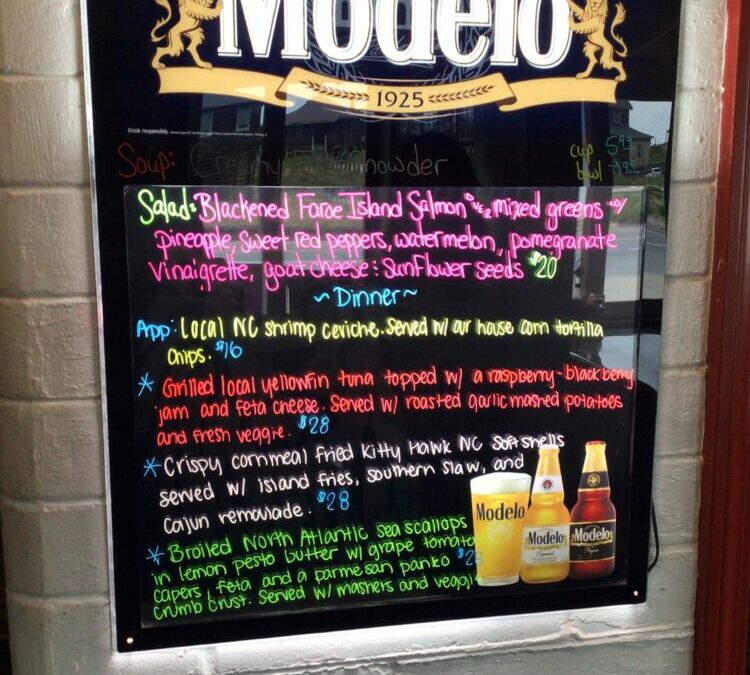 Modelo
1925
Drink responsibly.
Soup: Creamy howder cup 5.99
bowl 7.99
Salad: Blackened Faroe Island Salmon over mixed greens w/
pineapple, sweet red peppers, watermelon, pomegranate
vinaigrette, goat cheese : sunflower seeds $20
~ Dinner ~
App: Local NC shrimp ceviche. Served w/ our house corn tortilla
chips. $16
* Grilled local yellowfin tuna topped w/ a raspberry-blackberry
jam and feta cheese. Served w/ roasted garlic mashed potatoes
and fresh veggie. $28
* Crispy cornmeal fried Kitty Hawk NC Softshells
served w/ island fries, southern slaw, and
Cajun remoulade. $28
* Broiled North Atlantic sea scallops
in lemon pesto butter w/ grape tomato
capers, feta and a parmesan panko
crumb crust. Served w/ mashers and veggie
Modelo
Modelo
Especial
Modelo
Negra